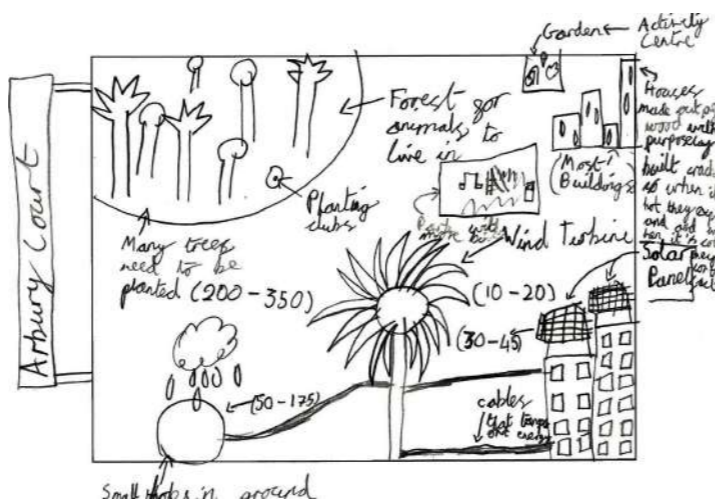 Arbury Court
Garden
Activity
Centre
Forest for
animals to
live in
Planting
clubs
Many trees
need to be
planted (200-350)
(Most
Buildings)
Houses
made out of
wood with
purposely
built
so when it
hot they
and
it is
Solar
Panel
Wind Turbine
(10-20)
(30-45)
(50-175)
cables
that
energy
Small in ground